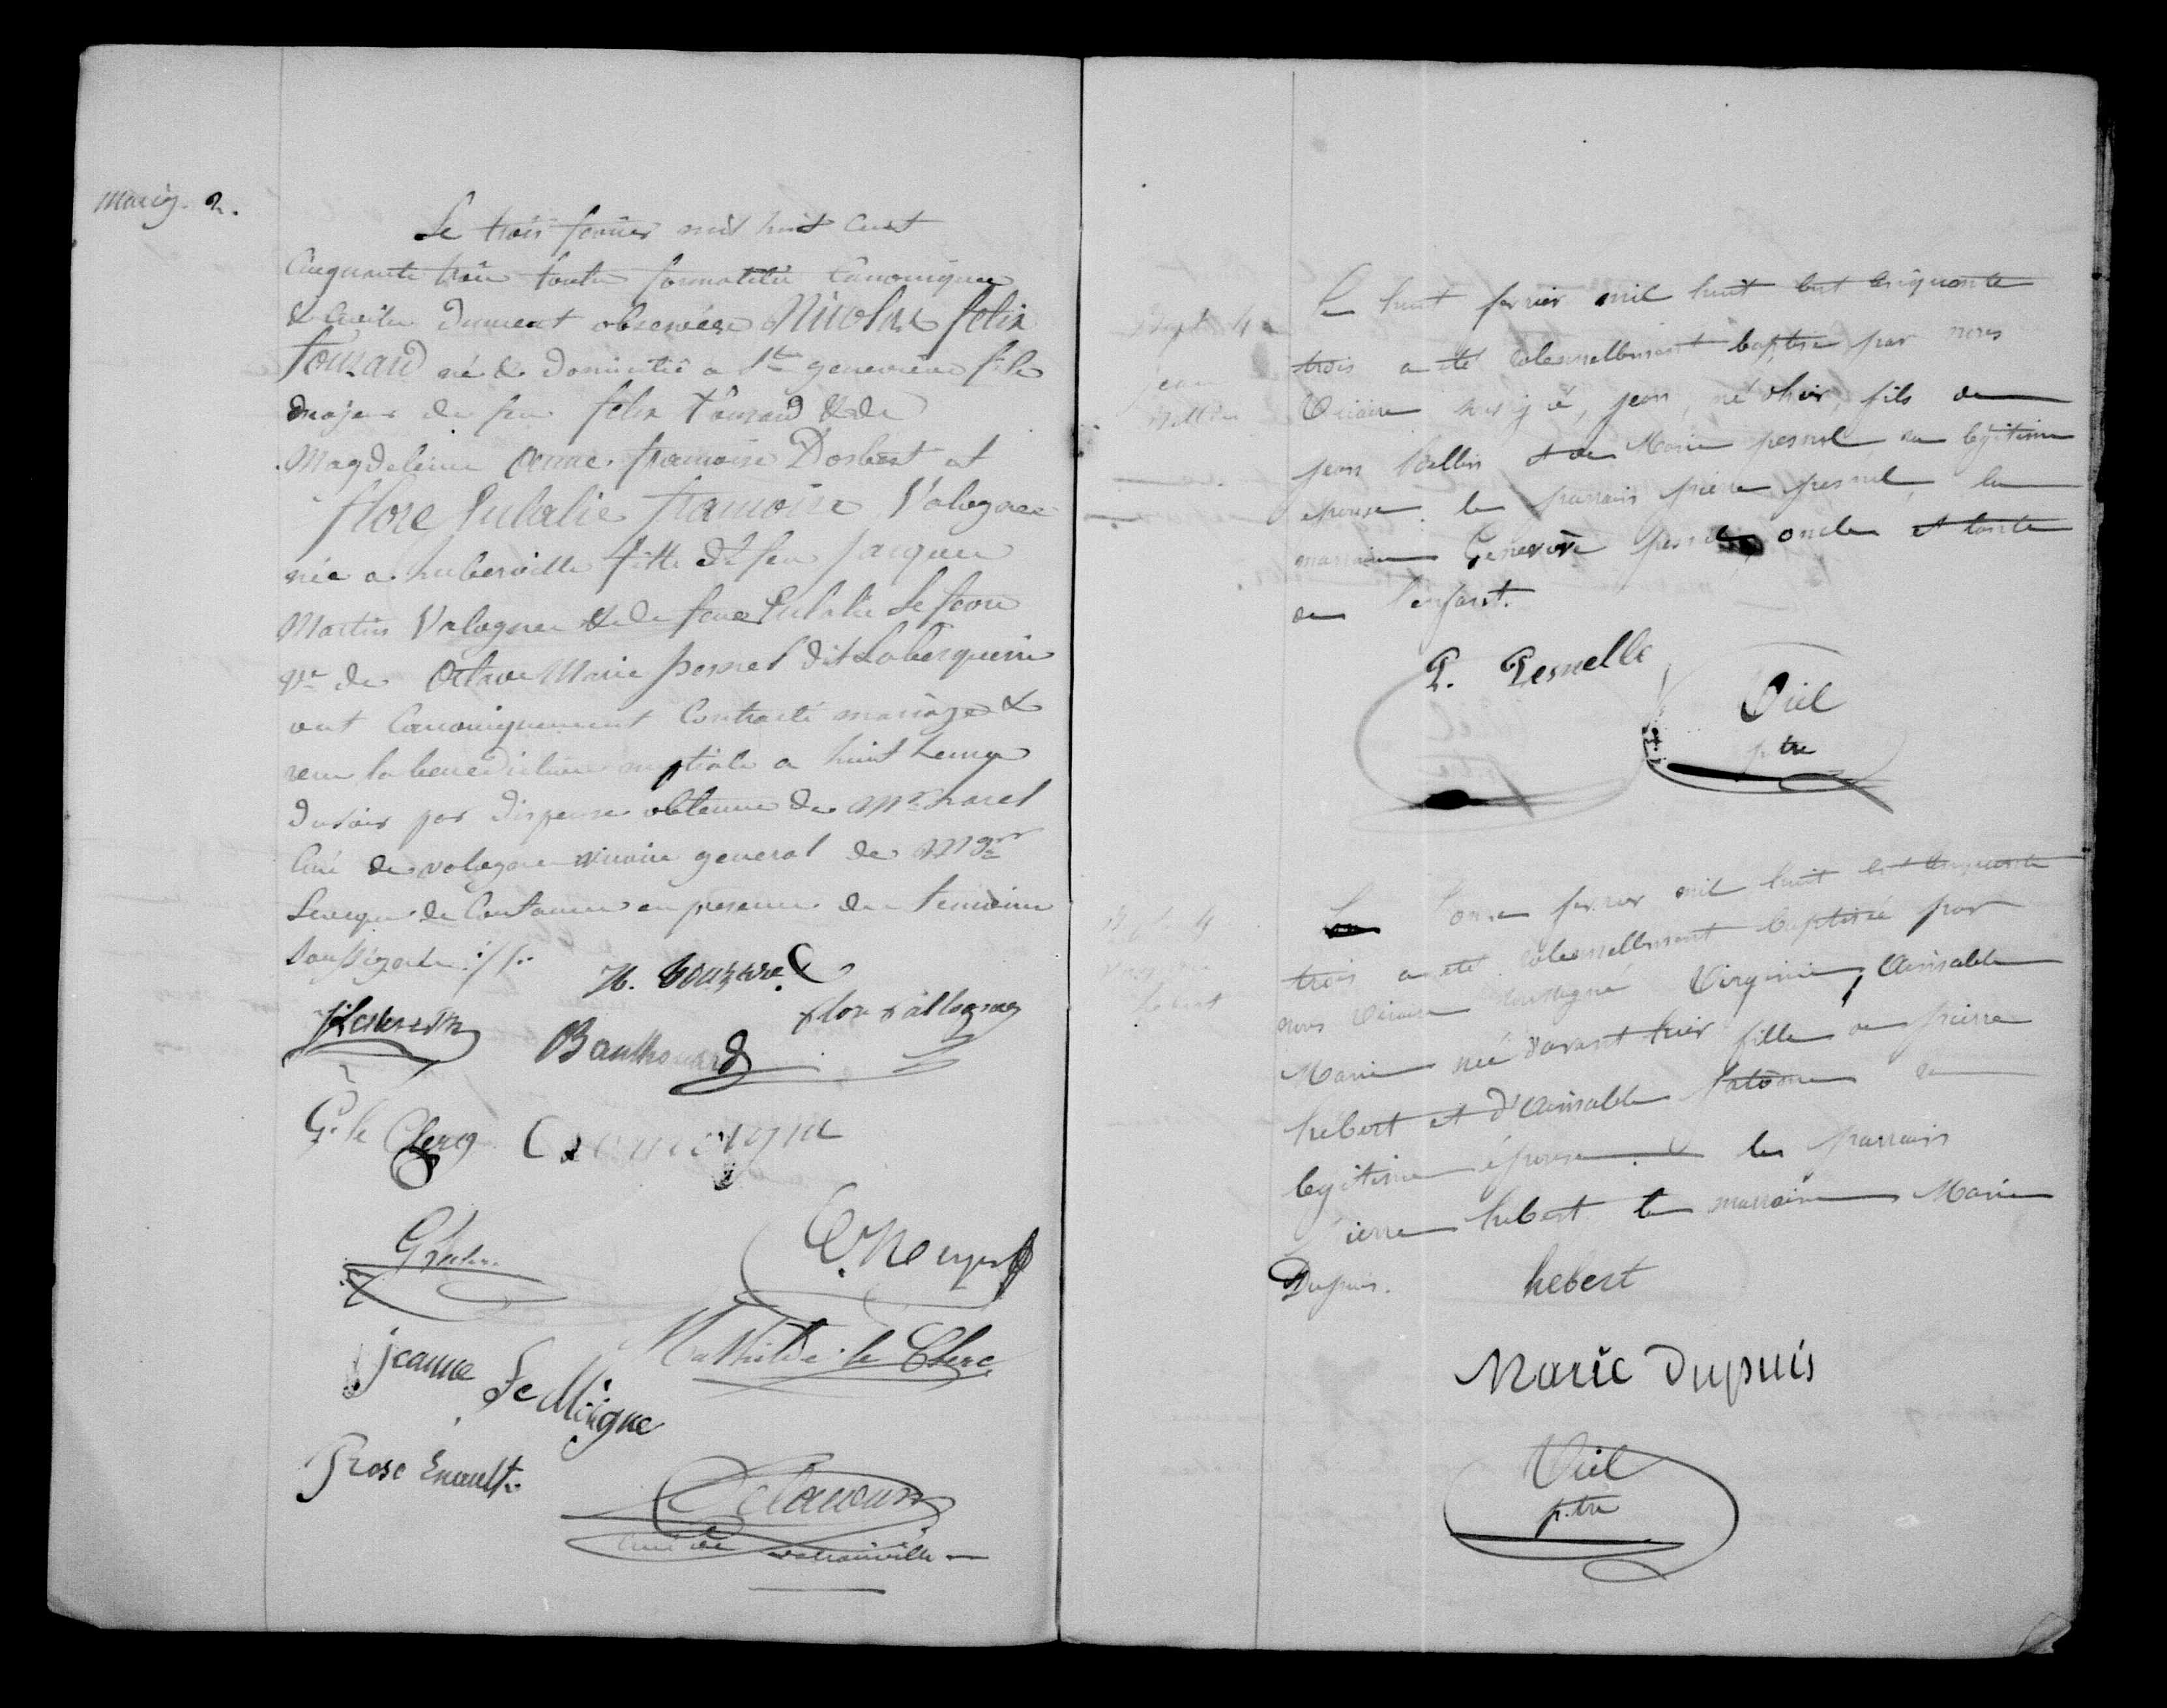 Mariag. 2.
Le trois fevrier mil huit cent
Cinquante trois toutes formalités Canoniques
& Civiles dument observées Nicolas felix
Touzard né & domicilié a Ste genevieve fils
majeur de feu felix Touzard & de
Magdeleine Anne françoise Dorbert et
flore Eulalie françoise Valognes
née a huberville fille de feu jacques
Martin Valognes & de feue Eulalie Lefevre
Vve de Octave Marie pesnel dit
ont Canoniquement Contracté mariage &
recu la benediction nuptiale a huit heures
du soir par dispense obtenue de Mr
Curé de valognes vicaire general de Mgr
Leveque de Coutances en presence des temoins
soussignés ://:
N. Touzard
flore vallognes
G. le Clerq
Jeanne Le Migne
Mathilde le Clerc
Rose Enault
Delaucour
Curé de
Bapt. 4
jean
Le huit fevrier mil huit cent cinquante
trois a été solennellement baptisé par nous
Vicaire sousigné, jean, né d'hier, fils de
jean et de Marie pesnel sa légitime
epouse. le parrain pierre pesnel, la
marraine Genevieve oncle et tante
de l'enfant.
P. Pesnelle
Viel
ptre
hebert
Le onze fevrier mil huit cent cinquante
trois a été solennellement baptisée par
nous Vicaire soussigné Virginie, Aimable
Marie née d'avant hier fille de pierre
hébert et d'Aimable sa
legitime épouse. le parrain
Pierre hebert la marraine Marie
Dupuis. hebert
Marie Dupuis
Viel
ptre